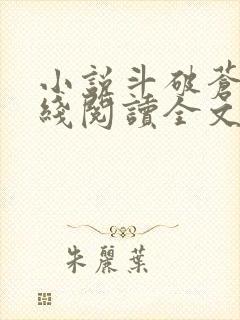 小説斗破蒼
綫閱讀全文
朱麗葉